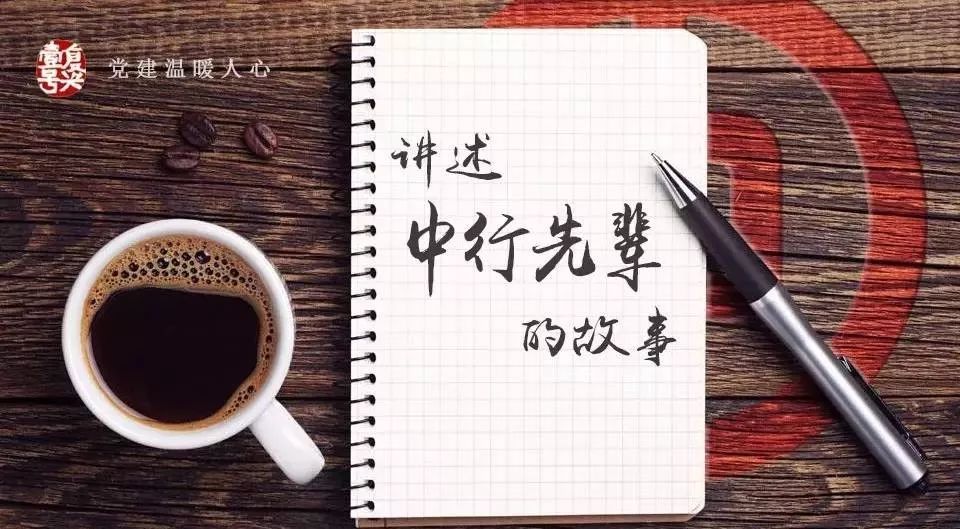 复兴壹号
党建温暖人心
讲述
中行先辈
的故事